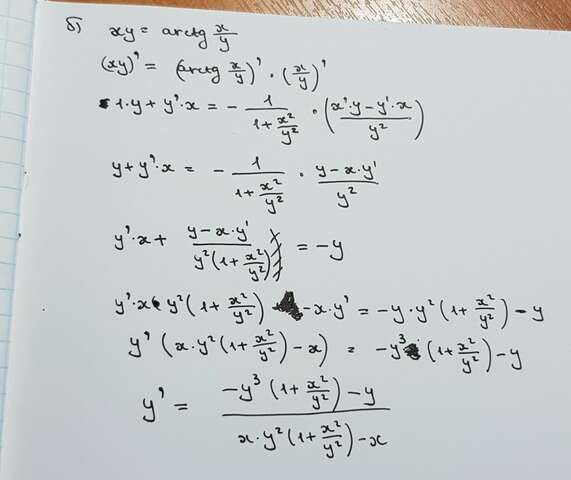 б) xy = arctg x/y
(xy)' = (arctg x/y)' · (x/y)'
1·y + y'·x = - 1/(1+x²/y²) · ((x'·y-y'·x)/y²)
y+y'·x = - 1/(1+x²/y²) · (y-x·y')/y²
y'·x + (y-x·y')/(y²(1+x²/y²)) = -y
y'·x· y²(1+x²/y²) -x·y' = -y·y²(1+x²/y²) -y
y' (x·y²(1+x²/y²)-x) = -y³(1+x²/y²)-y
y' = (-y³(1+x²/y²)-y)/(x·y²(1+x²/y²)-x)